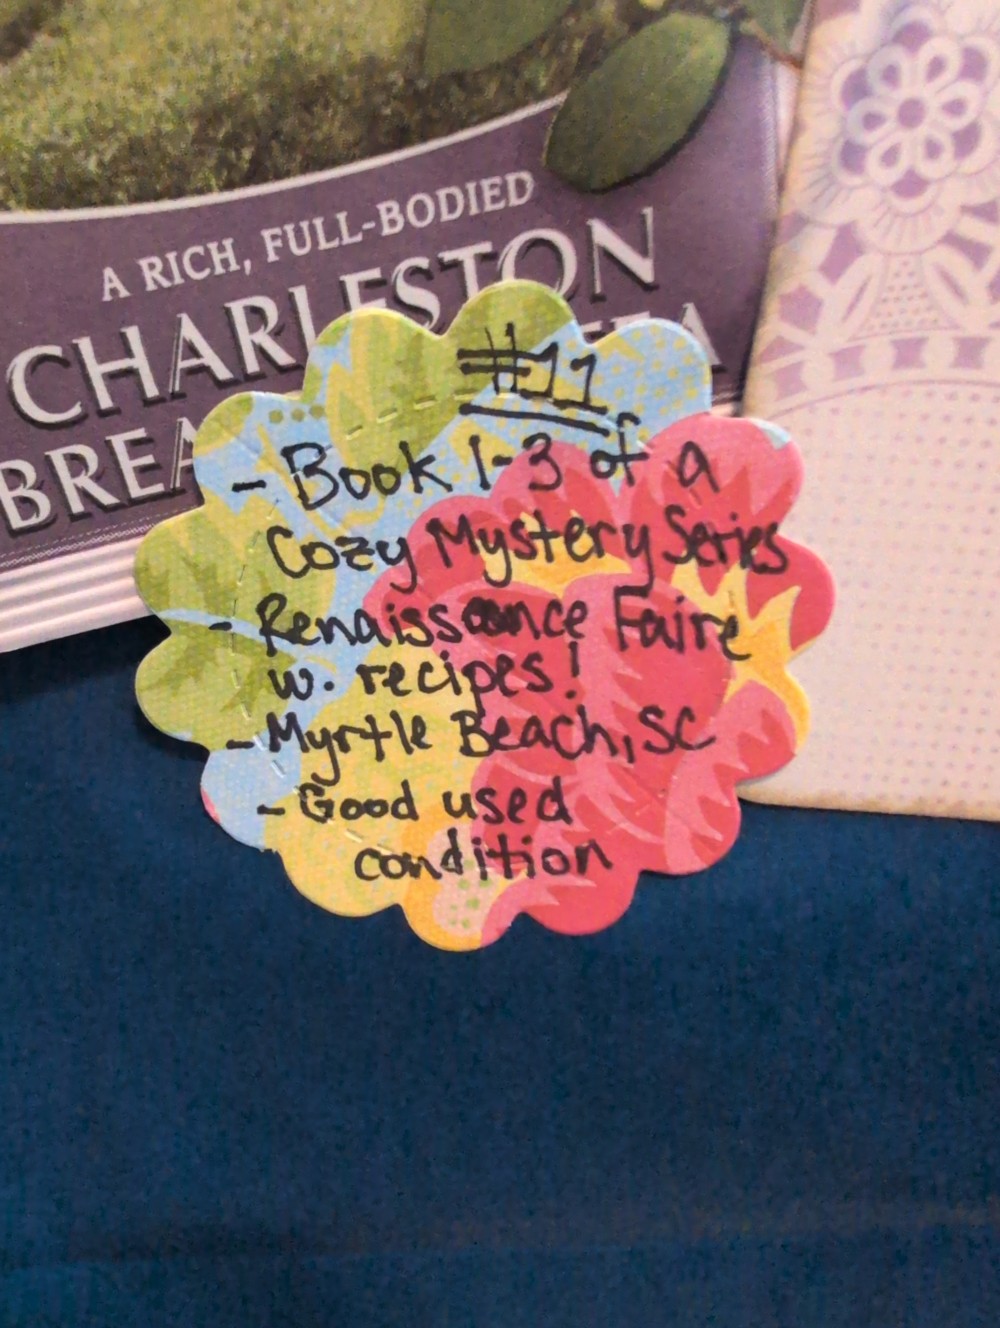 A RICH, FULL-BODIED
CHARLESTON
#11
- Book 1-3 of a
Cozy Mystery Series
- Renaissance Faire
w. recipes!
- Myrtle Beach, SC
- Good used
condition